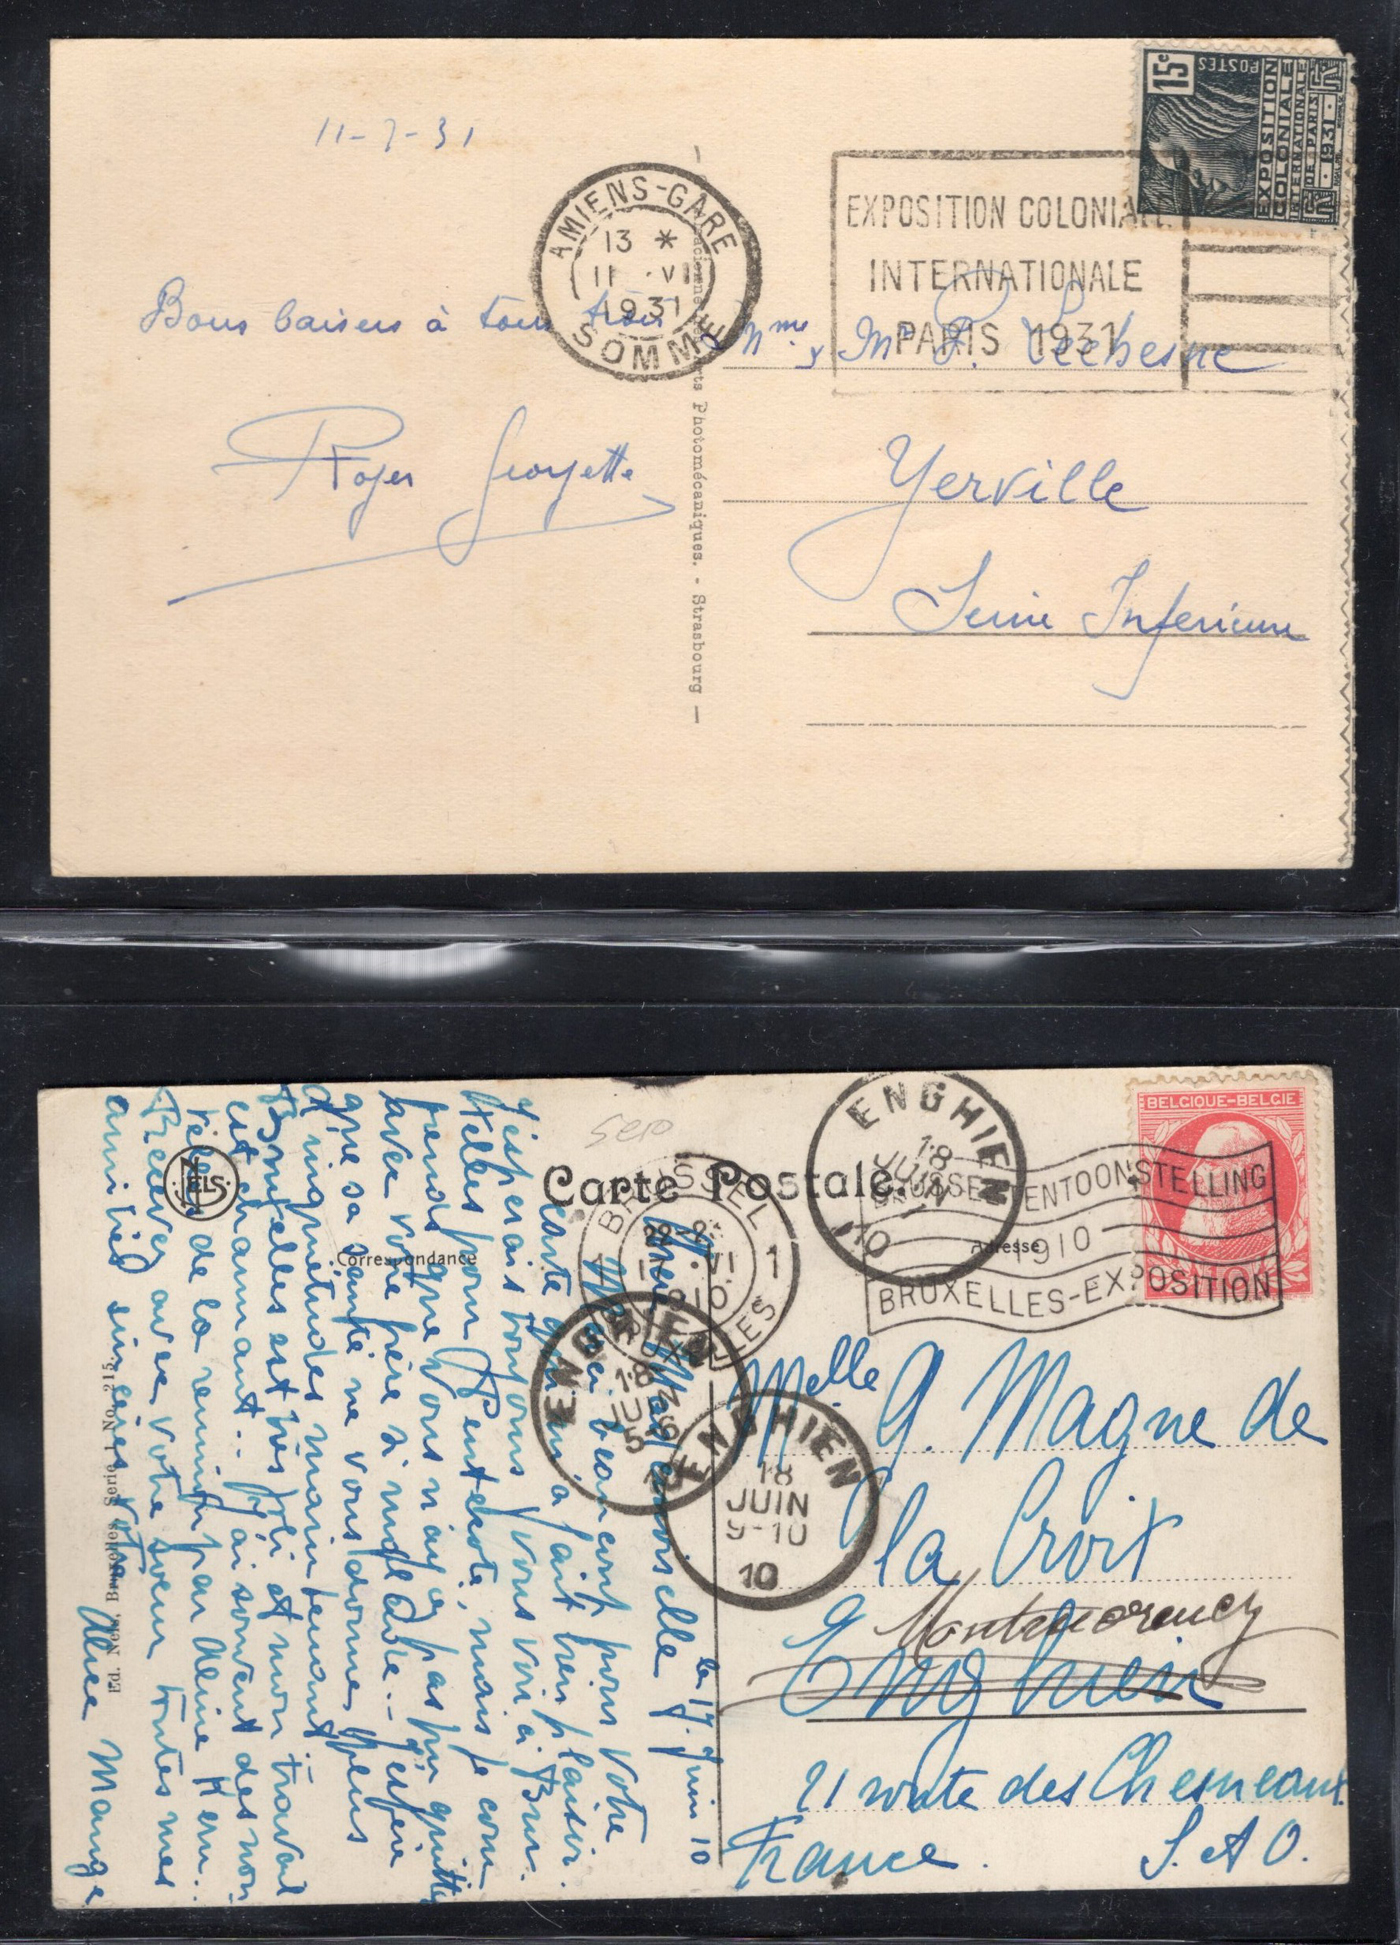 11-7-31
AMIENS-GARE
13 *
11 VII
1931
SOMME
EXPOSITION COLONIALE
INTERNATIONALE
PARIS 1931
15c
POSTES
EXPOSITION
COLONIALE
INTERNATIONALE
DE PARIS
1931
Bons baisers à tous trois
Mme & Mr
Roger Georgette
Yerville
Seine Inferieure
Photomécaniques. - Strasbourg —
NELS
Carte Postale.
Correspondance
Adresse
Ed. Nels, Bruxelles, Serie 1 No. 215.
BELGIQUE-BELGIE
BRUSSEL TENTOONSTELLING
1910
BRUXELLES-EXPOSITION
BRUSSEL
1 1
VI
1910
BRUXELLES
ENGHIEN
18
JUIN
10
ENGHIEN
18
JUIN
5-6
ENGHIEN
18
JUIN
9-10
10
le 17. Juin 10
Mademoiselle
Merci beaucoup pour votre
carte qui m'a fait bien plaisir.
J'espérais toujours vous voir à Brux-
elles pour Pentecote, mais je com-
prends que vous n'ayez pas pu quitter
avec votre père si malade... J'espère
que sa santé ne vous donne plus
d'inquiétudes maintenant
Bruxelles est très joli et mon travail
est charmant.. J'ai souvent des nou-
velles de la remuer par Aline Kern...
Recevez avec votre soeur toutes mes
amitiés sincères
Alice Mange
Melle G. Magne de
la Croix
Montmorency
Enghien
21 route des Chesneaux
France. S. et O.